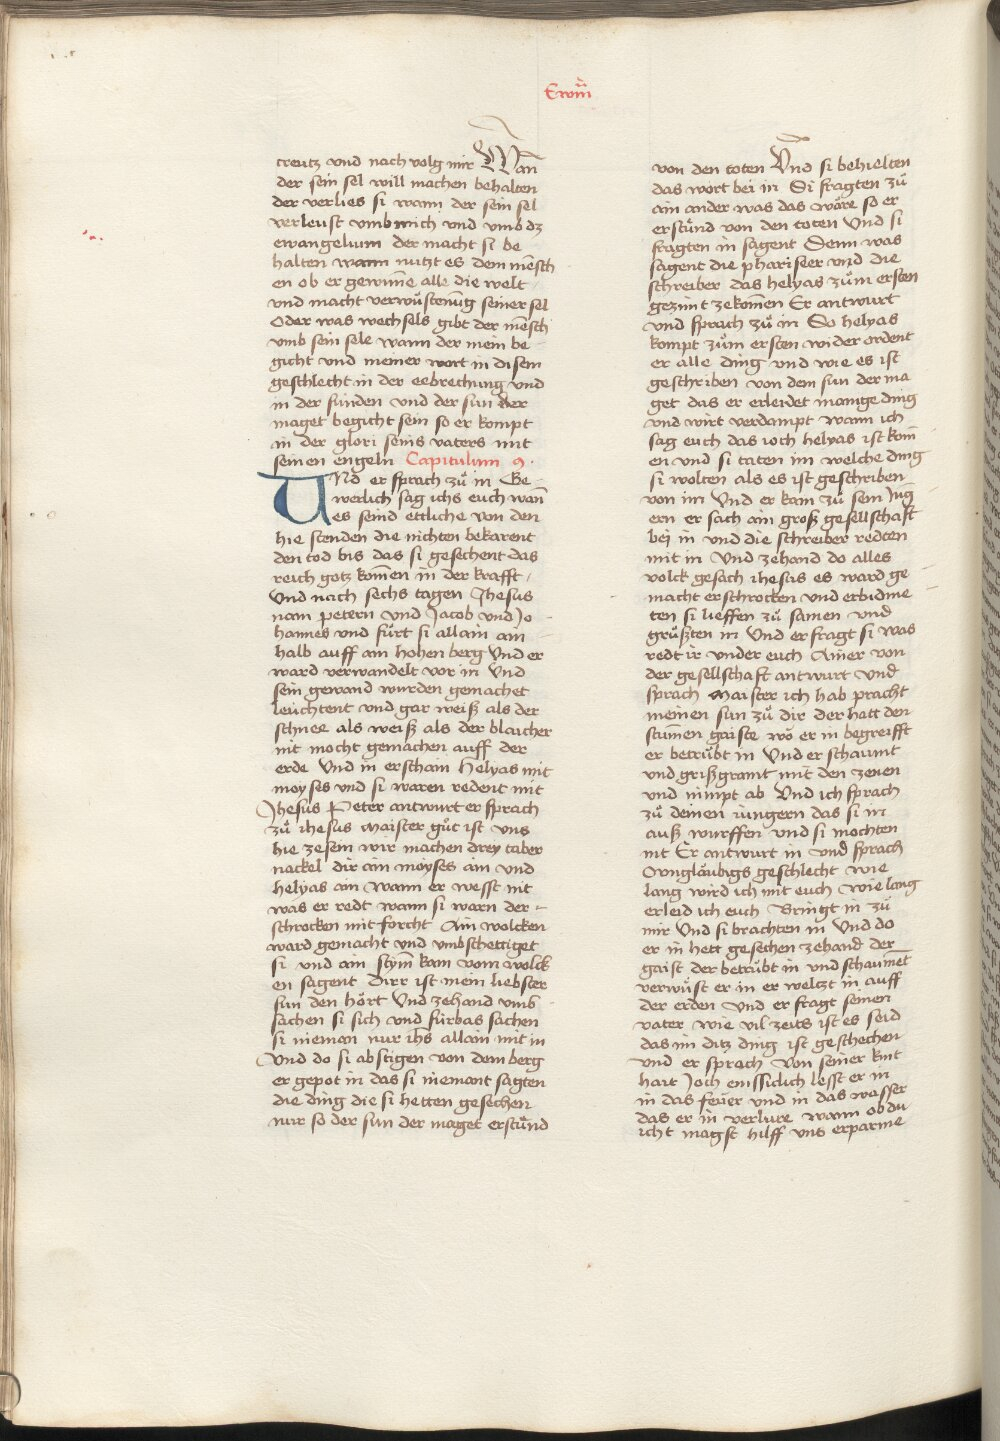 creutz vnd nach volg mir Wan̄
der sein sel will machen behalten
der verlies si wann der sein sel
verleust vmb mich vnd vmb dz
ewangelium der macht si be
halten wann nutzt es dem mēsch
en ob er gewin̄e alle die welt
vnd macht verwüstenūg seiner sel
Oder was wechsels gibt der mēsch
vmb sein sele wann der mein be
gicht vnd meiner wort in disem
geschlecht in der eebrechung vnd
in der sünden vnd der sun der
maget begicht sein so er kompt
in der glori seins vaters mit
seinen engeln Capitulum 9.
VNd er sprach zů in Ge
werlich sag ichs euch wan̄
es seind ettliche von den
hie stenden die nichten bekarent
den tod bis das si gesechent das
reich gotz kom̄en in der krafft
Vnd nach sechs tagen Jhesus
nam petern vnd Jacob vnd Jo
hannes vnd fürt si allain ain
halb auff ain hohen berg Vnd er
ward verwandelt vor in Vnd
sein gewand wurden gemachet
leuchtent vnd gar weiß als der
schnee als weiß als der blaicher
nit mocht gemachen auff der
erde Vnd in erschain Helyas mit
moyses vnd si waren redent mit
Jhesus Peter antwurt er sprach
zů ihesus maister gůt ist vns
hie zesein wir machen drey taber
nackel dir ain moyses ain vnd
helyas ain wann er wesst nit
was er redt wann si warn der
schrocken mit forcht Ain wolcken
ward gemacht vnd vmbschettiget
si vnd ain stym̄ kam vom wolck
en sagent Dirr ist mein liebster
sun den hört Vnd zehand vmb
sachen si sich vnd fürbas sachen
si nieman nur ihs allain mit in
Vnd do si abstigen von dem berg
er gepot in das si niemant sagten
die ding die si hetten gesechen
nur so der sun der maget erstůnd
von den toten Vnd si behielten
das wort bei in Si fragten zů
ain ander was das wäre so er
erstůnd von den toten Vnd si
fragten in sagent Denn was
sagent die phariseer vnd die
schreiber das helyas zům ersten
gezimt zekom̄en Er antwurt
vnd sprach zů in So helyas
kompt zům ersten wider ordent
er alle ding vnd wie es ist
geschriben von dem sun der ma
get das er erleidet manige ding
vnd wirt verdampt wann ich
sag euch das ioch helyas ist kom̄
en vnd si taten im welche ding
si wolten als es ist geschriben
von im Vnd er kam zů sein Jūg
ern er sach ain groß gesellschaft
bei in vnd die schreiber redten
mit in Vnd zehand do alles
volck gesach ihesus es ward ge
macht erschrocken vnd erbidme
ten si lieffen zů samen vnd
grüßten in Vnd er fragt si was
redt ir vnder euch Ainer von
der gesellschaft antwurt vnd
sprach maister ich hab pracht
meinen sun zů dir der hatt den
stum̄en gaiste wo er in begreifft
er betrübt in Vnd er schaumt
vnd grißgramt mit den zenen
vnd nimpt ab Vnd ich sprach
zů deinen iungern das si in
auß wurffen vnd si mochten
nit Er antwurt in vnd sprach
O vngläubigs geschlecht wie
lang wird ich mit euch wie lang
erleid ich euch Bringt in zů
mir Vnd si brachten in Vnd do
er in hett gesechen zehand der
gaist der betrübt in vnd schaumet
verwüst er in er weltzt in auff
der erden Vnd er fragt seinen
vater wie vil zeits ist es seid
das im ditz ding ist geschechen
vnd er sprach Von seiner kint
hait Joch emssiclich lesst er in
in das feüer vnd in das wasser
das er in verlure wann ob du
icht magst hilff vns erparme